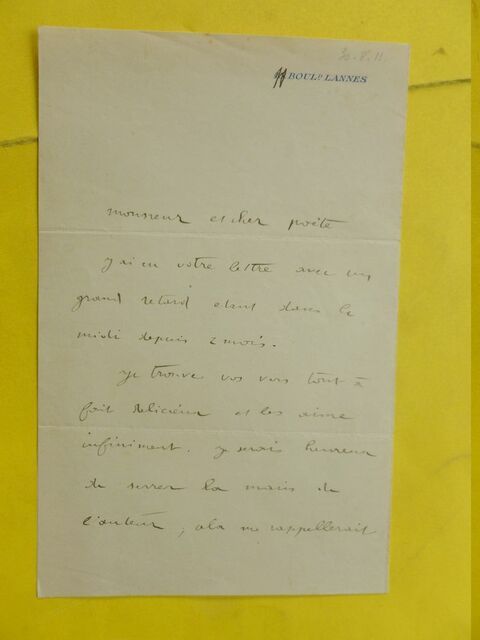 30-8-11
BOULD LANNES
monsieur et cher poète
j'ai eu votre lettre avec un
grand retard etant dans le
midi depuis 2 mois.
je trouve vos vers tout à
fait delicieux et les aime
infiniment. je serais heureux
de serrer la main de
l'auteur, cela me rappellerait